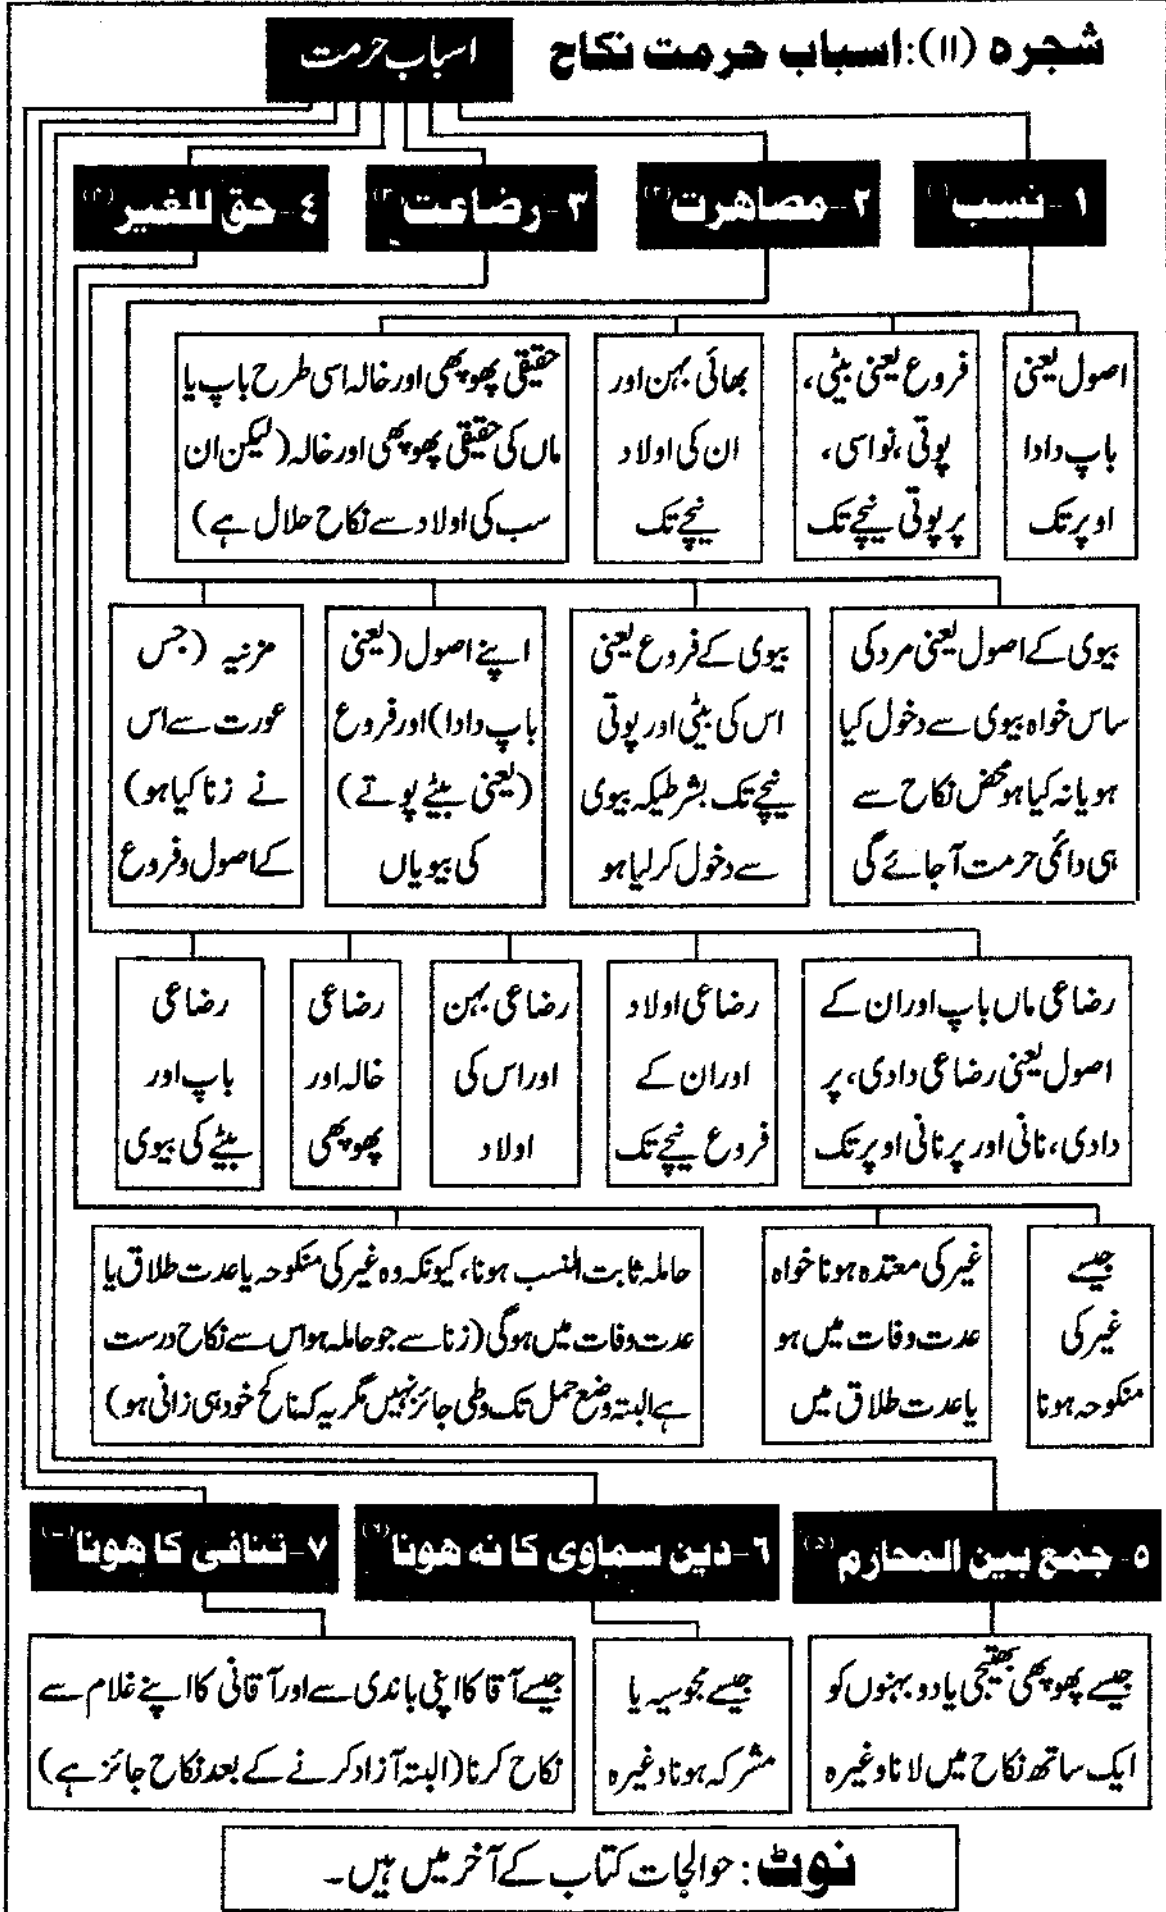 شجرہ (۱۱): اسباب حرمت نکاح
اسباب حرمت
۱- نسب (۱)
۲- مصاهرت (۲)
۳- رضاعت (۳)
٤- حق للغير (۴)
اصول یعنی
باپ دادا
اوپر تک
فروع یعنی بیٹی،
پوتی، نواسی،
پرپوتی نیچے تک
بھائی بہن اور
ان کی اولاد
نیچے تک
حقیقی پھوپھی اور خالہ اسی طرح باپ یا
ماں کی حقیقی پھوپھی اور خالہ (لیکن ان
سب کی اولاد سے نکاح حلال ہے)
بیوی کے اصول یعنی مرد کی
ساس خواہ بیوی سے دخول کیا
ہو یا نہ کیا ہو محض نکاح سے
ہی دائمی حرمت آجائے گی
بیوی کے فروع یعنی
اس کی بیٹی اور پوتی
نیچے تک بشرطیکہ بیوی
سے دخول کرلیا ہو
اپنے اصول (یعنی
باپ دادا) اور فروع
(یعنی بیٹے پوتے)
کی بیویاں
مزنیہ (جس
عورت سے اس
نے زنا کیا ہو)
کے اصول وفروع
رضاعی ماں باپ اور ان کے
اصول یعنی رضاعی دادی، پر
دادی، نانی اور پرنانی اوپر تک
رضاعی اولاد
اور ان کے
فروع نیچے تک
رضاعی بہن
اور اس کی
اولاد
رضاعی
خالہ اور
پھوپھی
رضاعی
باپ اور
بیٹے کی بیوی
جیسے
غیر کی
منکوحہ ہونا
غیر کی معتدہ ہونا خواہ
عدت وفات میں ہو
یا عدت طلاق میں
حاملہ ثابت النسب ہونا، کیونکہ وہ غیر کی منکوحہ یا عدت طلاق یا
عدت وفات میں ہوگی (زنا سے جو حاملہ ہو اس سے نکاح درست
ہے البتہ وضع حمل تک وطی جائز نہیں مگر یہ کہ ناکح خود ہی زانی ہو)
۵- جمع بین المحارم (۵)
٦- دین سماوی کا نہ ہونا (۶)
۷- تنافی کا ہونا (۷)
جیسے پھوپھی بھتیجی یا دو بہنوں کو
ایک ساتھ نکاح میں لانا وغیرہ
جیسے مجوسیہ یا
مشرکہ ہونا وغیرہ
جیسے آقا کا اپنی باندی سے اور آقانی کا اپنے غلام سے
نکاح کرنا (البتہ آزاد کرنے کے بعد نکاح جائز ہے)
نوٹ: حوالجات کتاب کے آخر میں ہیں۔